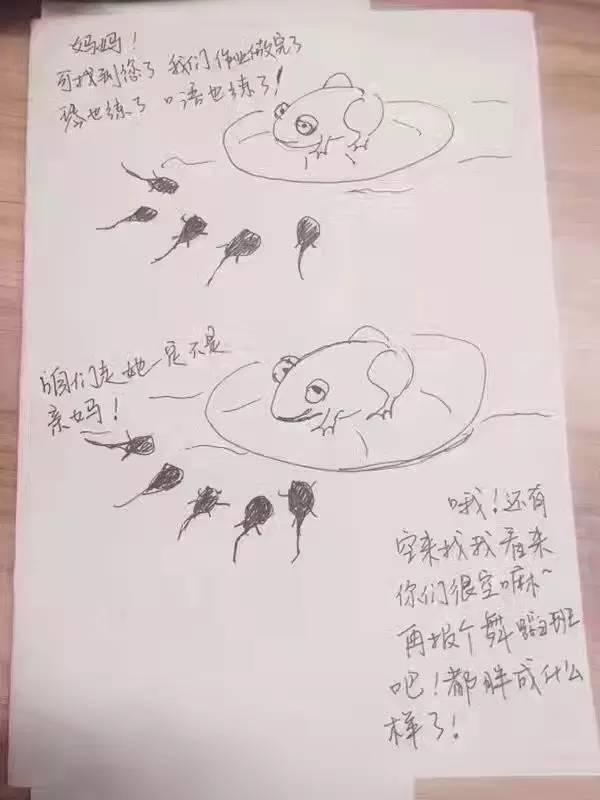 妈妈!
可找到您了 我们作业做完了
琴也练了 口语也练了!
咱们走她一定不是
亲妈!
哦!还有
空来找我看来
你们很空嘛~
再报个舞蹈班
吧!都胖成什么
样了!